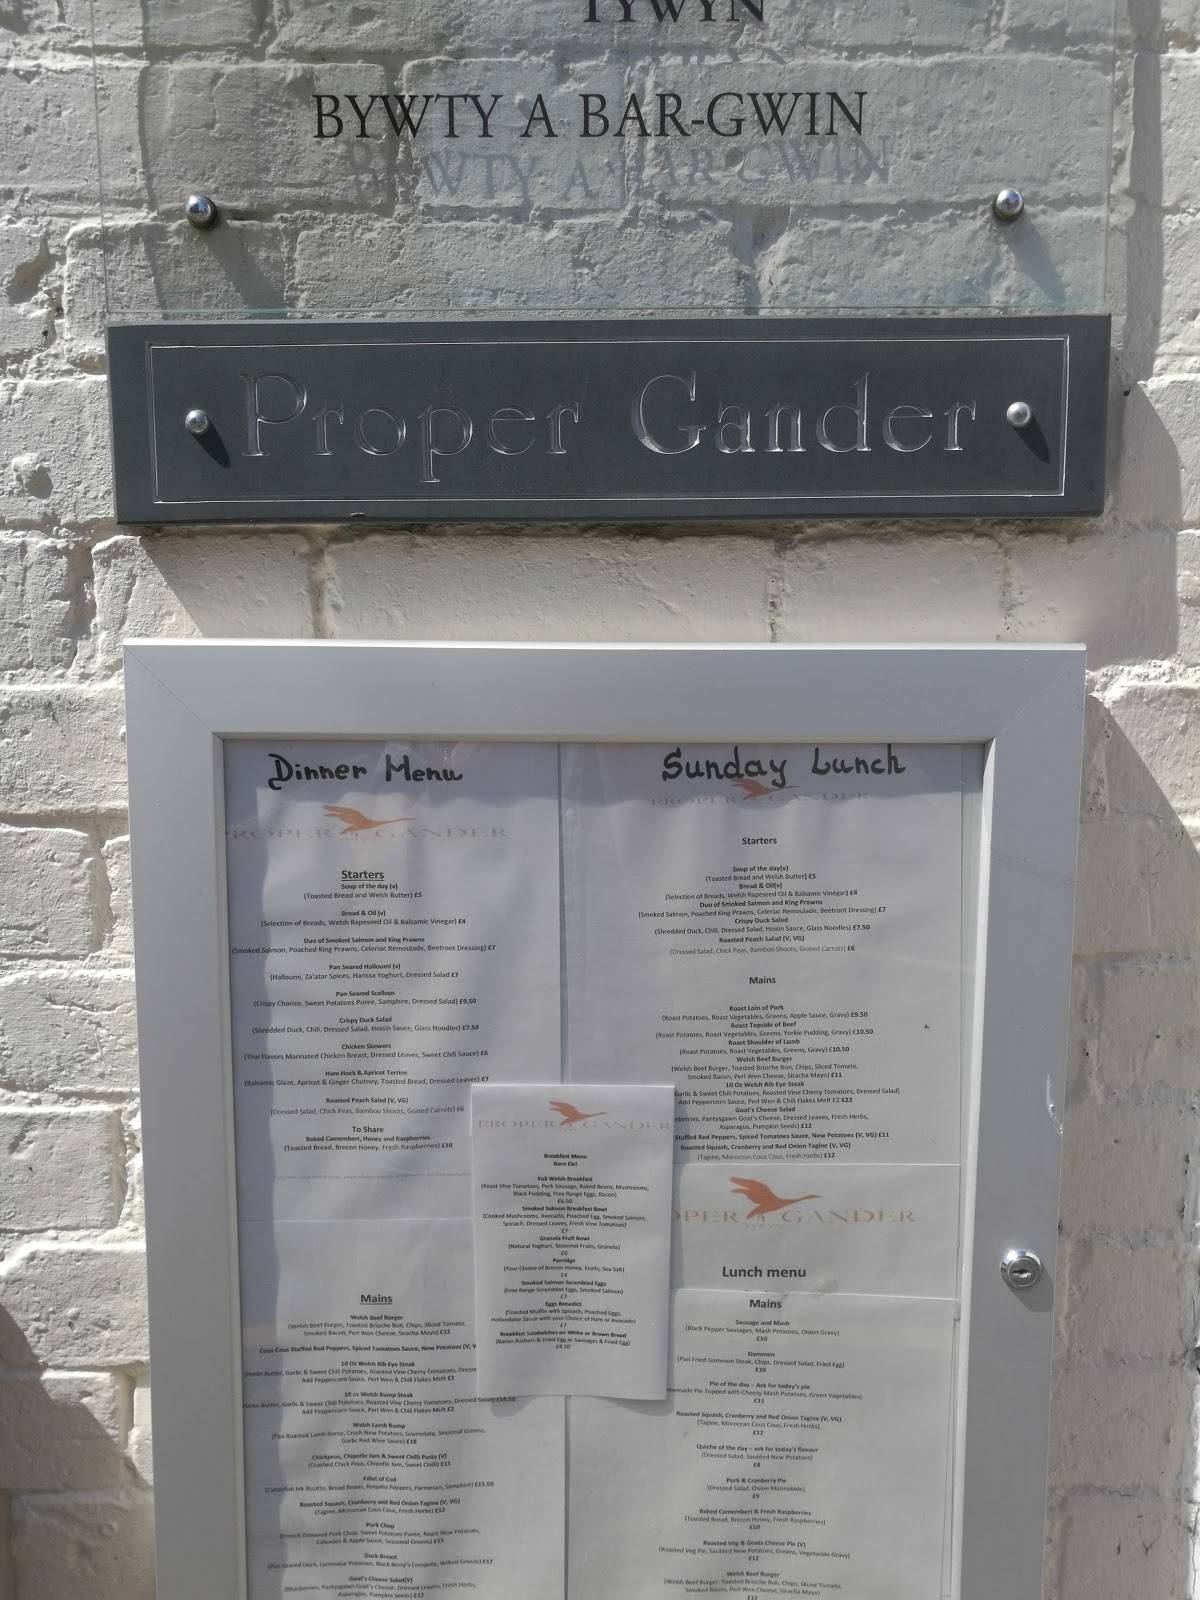 TYWYN
BYWTY A BAR-GWIN
Proper Gander
Dinner Menu
PROPER GANDER
Starters
Soup of the day (v)
(Toasted Bread and Welsh Butter) £5
Bread & Oil (v)
(Selection of Breads, Welsh Rapeseed Oil & Balsamic Vinegar) £4
Duo of Smoked Salmon and King Prawns
(Smoked Salmon, Poached King Prawns, Celeriac Remoulade, Beetroot Dressing) £7
Pan Seared Halloumi (v)
(Halloumi, Za'atar Spices, Harissa Yoghurt, Dressed Salad £7
Pan Seared Scallops
(Crispy Chorizo, Sweet Potatoes Puree, Samphire, Dressed Salad) £9.50
Crispy Duck Salad
(Shredded Duck, Chili, Dressed Salad, Hoisin Sauce, Glass Noodles) £7.50
Chicken Skewers
(Thai Flavors Marinated Chicken Breast, Dressed Leaves, Sweet Chili Sauce) £6
Ham Hock & Apricot Terrine
(Balsamic Glaze, Apricot & Ginger Chutney, Toasted Bread, Dressed Leaves) £7
Roasted Peach Salad (V, VG)
(Dressed Salad, Chick Peas, Bamboo Shoots, Grated Carrots) £6
To Share
Baked Camembert, Honey and Raspberries
(Toasted Bread, Brecon Honey, Fresh Raspberries) £10
Mains
Welsh Beef Burger
(Welsh Beef Burger, Toasted Brioche Bun, Chips, Sliced Tomato,
Smoked Bacon, Perl Wen Cheese, Siracha Mayo) £12
Cous Cous Stuffed Red Peppers, Spiced Tomatoes Sauce, New Potatoes (V, V
10 Oz Welsh Rib Eye Steak
(Herbs Butter, Garlic & Sweet Chili Potatoes, Roasted Vine Cherry Tomatoes, Dresse
Add Peppercorn Sauce, Perl Wen & Chili Flakes Melt £2
10 oz Welsh Rump Steak
Herbs Butter, Garlic & Sweet Chili Potatoes, Roasted Vine Cherry Tomatoes, Dressed Salad) £16.50
Add Peppercorn Sauce, Perl Wen & Chili Flakes Melt £2
Welsh Lamb Rump
(Pan Roasted Lamb Rump, Crush New Potatoes, Gremolata, Seasonal Greens,
Garlic Red Wine Sauce) £18
Chickpeas, Chipotle Jam & Sweet Chilli Pasta (V)
(Crushed Chick Peas, Chipotle Jam, Sweet Chilli) £11
Fillet of Cod
(Cuttlefish Ink Risotto, Broad Beans, Roquito Peppers, Parmesan, Samphire) £15.50
Roasted Squash, Cranberry and Red Onion Tagine (V, VG)
(Tagine, Moroccan Cous Cous, Fresh Herbs) £12
Pork Chop
(French Trimmed Pork Chop, Sweet Potatoes Puree, Roast New Potatoes,
Calvados & Apple Sauce, Seasonal Greens) £15
Duck Breast
(Pan Seared Duck, Lyonnaise Potatoes, Black Berry's Compote, Wilted Greens) £17
Goat's Cheese Salad(V)
(Blueberries, Pantysgawn Goat's Cheese, Dressed Leaves, Fresh Herbs,
Asparagus, Pumpkin Seeds) £12
PROPER GANDER
Breakfast Menu
Bore Da!
Full Welsh Breakfast
(Roast Vine Tomatoes, Pork Sausage, Baked Beans, Mushrooms,
Black Pudding, Free Range Eggs, Bacon)
£6.50
Smoked Salmon Breakfast Bowl
(Cooked Mushrooms, Avocado, Poached Egg, Smoked Salmon,
Spinach, Dressed Leaves, Fresh Vine Tomatoes)
£7
Granola Fruit Bowl
(Natural Yoghurt, Seasonal Fruits, Granola)
£6
Porridge
(Your Choice of Brecon Honey, Fruits, Sea Salt)
£4
Smoked Salmon Scrambled Eggs
(Free Range Scrambled Eggs, Smoked Salmon)
£7
Eggs Benedict
(Toasted Muffin with Spinach, Poached Eggs,
Hollandaise Sauce with your Choice of Ham or Avocado)
£7
Breakfast Sandwiches on White or Brown Bread
(Bacon Rashers & Fried Egg or Sausages & Fried Egg)
£4.50
Sunday Lunch
PROPER GANDER
Starters
Soup of the day(v)
(Toasted Bread and Welsh Butter) £5
Bread & Oil(v)
(Selection of Breads, Welsh Rapeseed Oil & Balsamic Vinegar) £4
Duo of Smoked Salmon and King Prawns
(Smoked Salmon, Poached King Prawns, Celeriac Remoulade, Beetroot Dressing) £7
Crispy Duck Salad
(Shredded Duck, Chili, Dressed Salad, Hoisin Sauce, Glass Noodles) £7.50
Roasted Peach Salad (V, VG)
(Dressed Salad, Chick Peas, Bamboo Shoots, Grated Carrots) £6
Mains
Roast Loin of Pork
(Roast Potatoes, Roast Vegetables, Greens, Apple Sauce, Gravy) £9.50
Roast Topside of Beef
(Roast Potatoes, Roast Vegetables, Greens, Yorkie Pudding, Gravy) £10.50
Roast Shoulder of Lamb
(Roast Potatoes, Roast Vegetables, Greens, Gravy) £10.50
Welsh Beef Burger
(Welsh Beef Burger, Toasted Brioche Bun, Chips, Sliced Tomato,
Smoked Bacon, Perl Wen Cheese, Siracha Mayo) £11
10 Oz Welsh Rib Eye Steak
Garlic & Sweet Chili Potatoes, Roasted Vine Cherry Tomatoes, Dressed Salad)
Add Peppercorn Sauce, Perl Wen & Chili Flakes Melt £2 £22
Goat's Cheese Salad
eberries, Pantysgawn Goat's Cheese, Dressed Leaves, Fresh Herbs,
Asparagus, Pumpkin Seeds) £12
Stuffed Red Peppers, Spiced Tomatoes Sauce, New Potatoes (V, VG) £11
Roasted Squash, Cranberry and Red Onion Tagine (V, VG)
(Tagine, Moroccan Cous Cous, Fresh Herbs) £12
OPER GANDER
TYWYN
Lunch menu
Mains
Sausage and Mash
(Black Pepper Sausages, Mash Potatoes, Onion Gravy)
£10
Gammon
(Pan Fried Gammon Steak, Chips, Dressed Salad, Fried Egg)
£10
Pie of the day – Ask for today's pie
memade Pie Topped with Cheesy Mash Potatoes, Green Vegetables)
£11
Roasted Squash, Cranberry and Red Onion Tagine (V, VG)
(Tagine, Moroccan Cous Cous, Fresh Herbs)
£12
Quiche of the day – ask for today's flavour
(Dressed Salad, Sautéed New Potatoes)
£8
Pork & Cranberry Pie
(Dressed Salad, Onion Marmalade)
£9
Baked Camembert & Fresh Raspberries
(Toasted Bread, Brecon Honey, Fresh Raspberries)
£10
Roasted Veg & Goats Cheese Pie (V)
(Roasted Veg Pie, Sautéed New Potatoes, Greens, Vegetarian Gravy)
£12
Welsh Beef Burger
(Welsh Beef Burger, Toasted Brioche Bun, Chips, Sliced Tomato,
Smoked Bacon, Perl Wen Cheese, Siracha Mayo)
£12